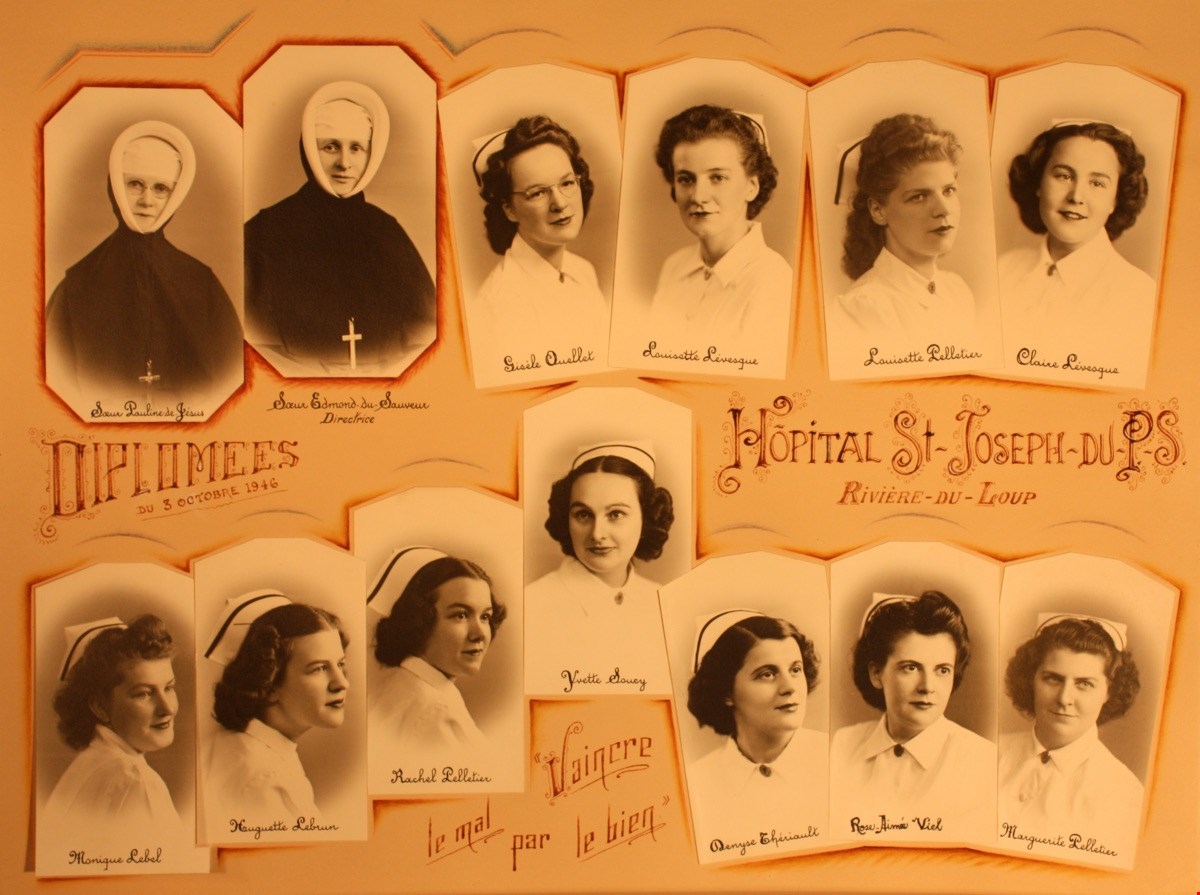 Sœur Pauline de Jésus
Sœur Edmond-du-Sauveur
Directrice
Gisèle Ouellet
Louisette Lévesque
Louisette Pelletier
Claire Lévesque
DIPLOMEES
DU 3 OCTOBRE 1946
HÔPITAL ST-JOSEPH-DU-P-S.
RIVIÈRE-DU-LOUP
Monique Lebel
Huguette Lebrun
Rachel Pelletier
Yvette Soucy
Denyse Thériault
Rose-Aimée Viel
Marguerite Pelletier
"Vaincre
le mal par le bien"